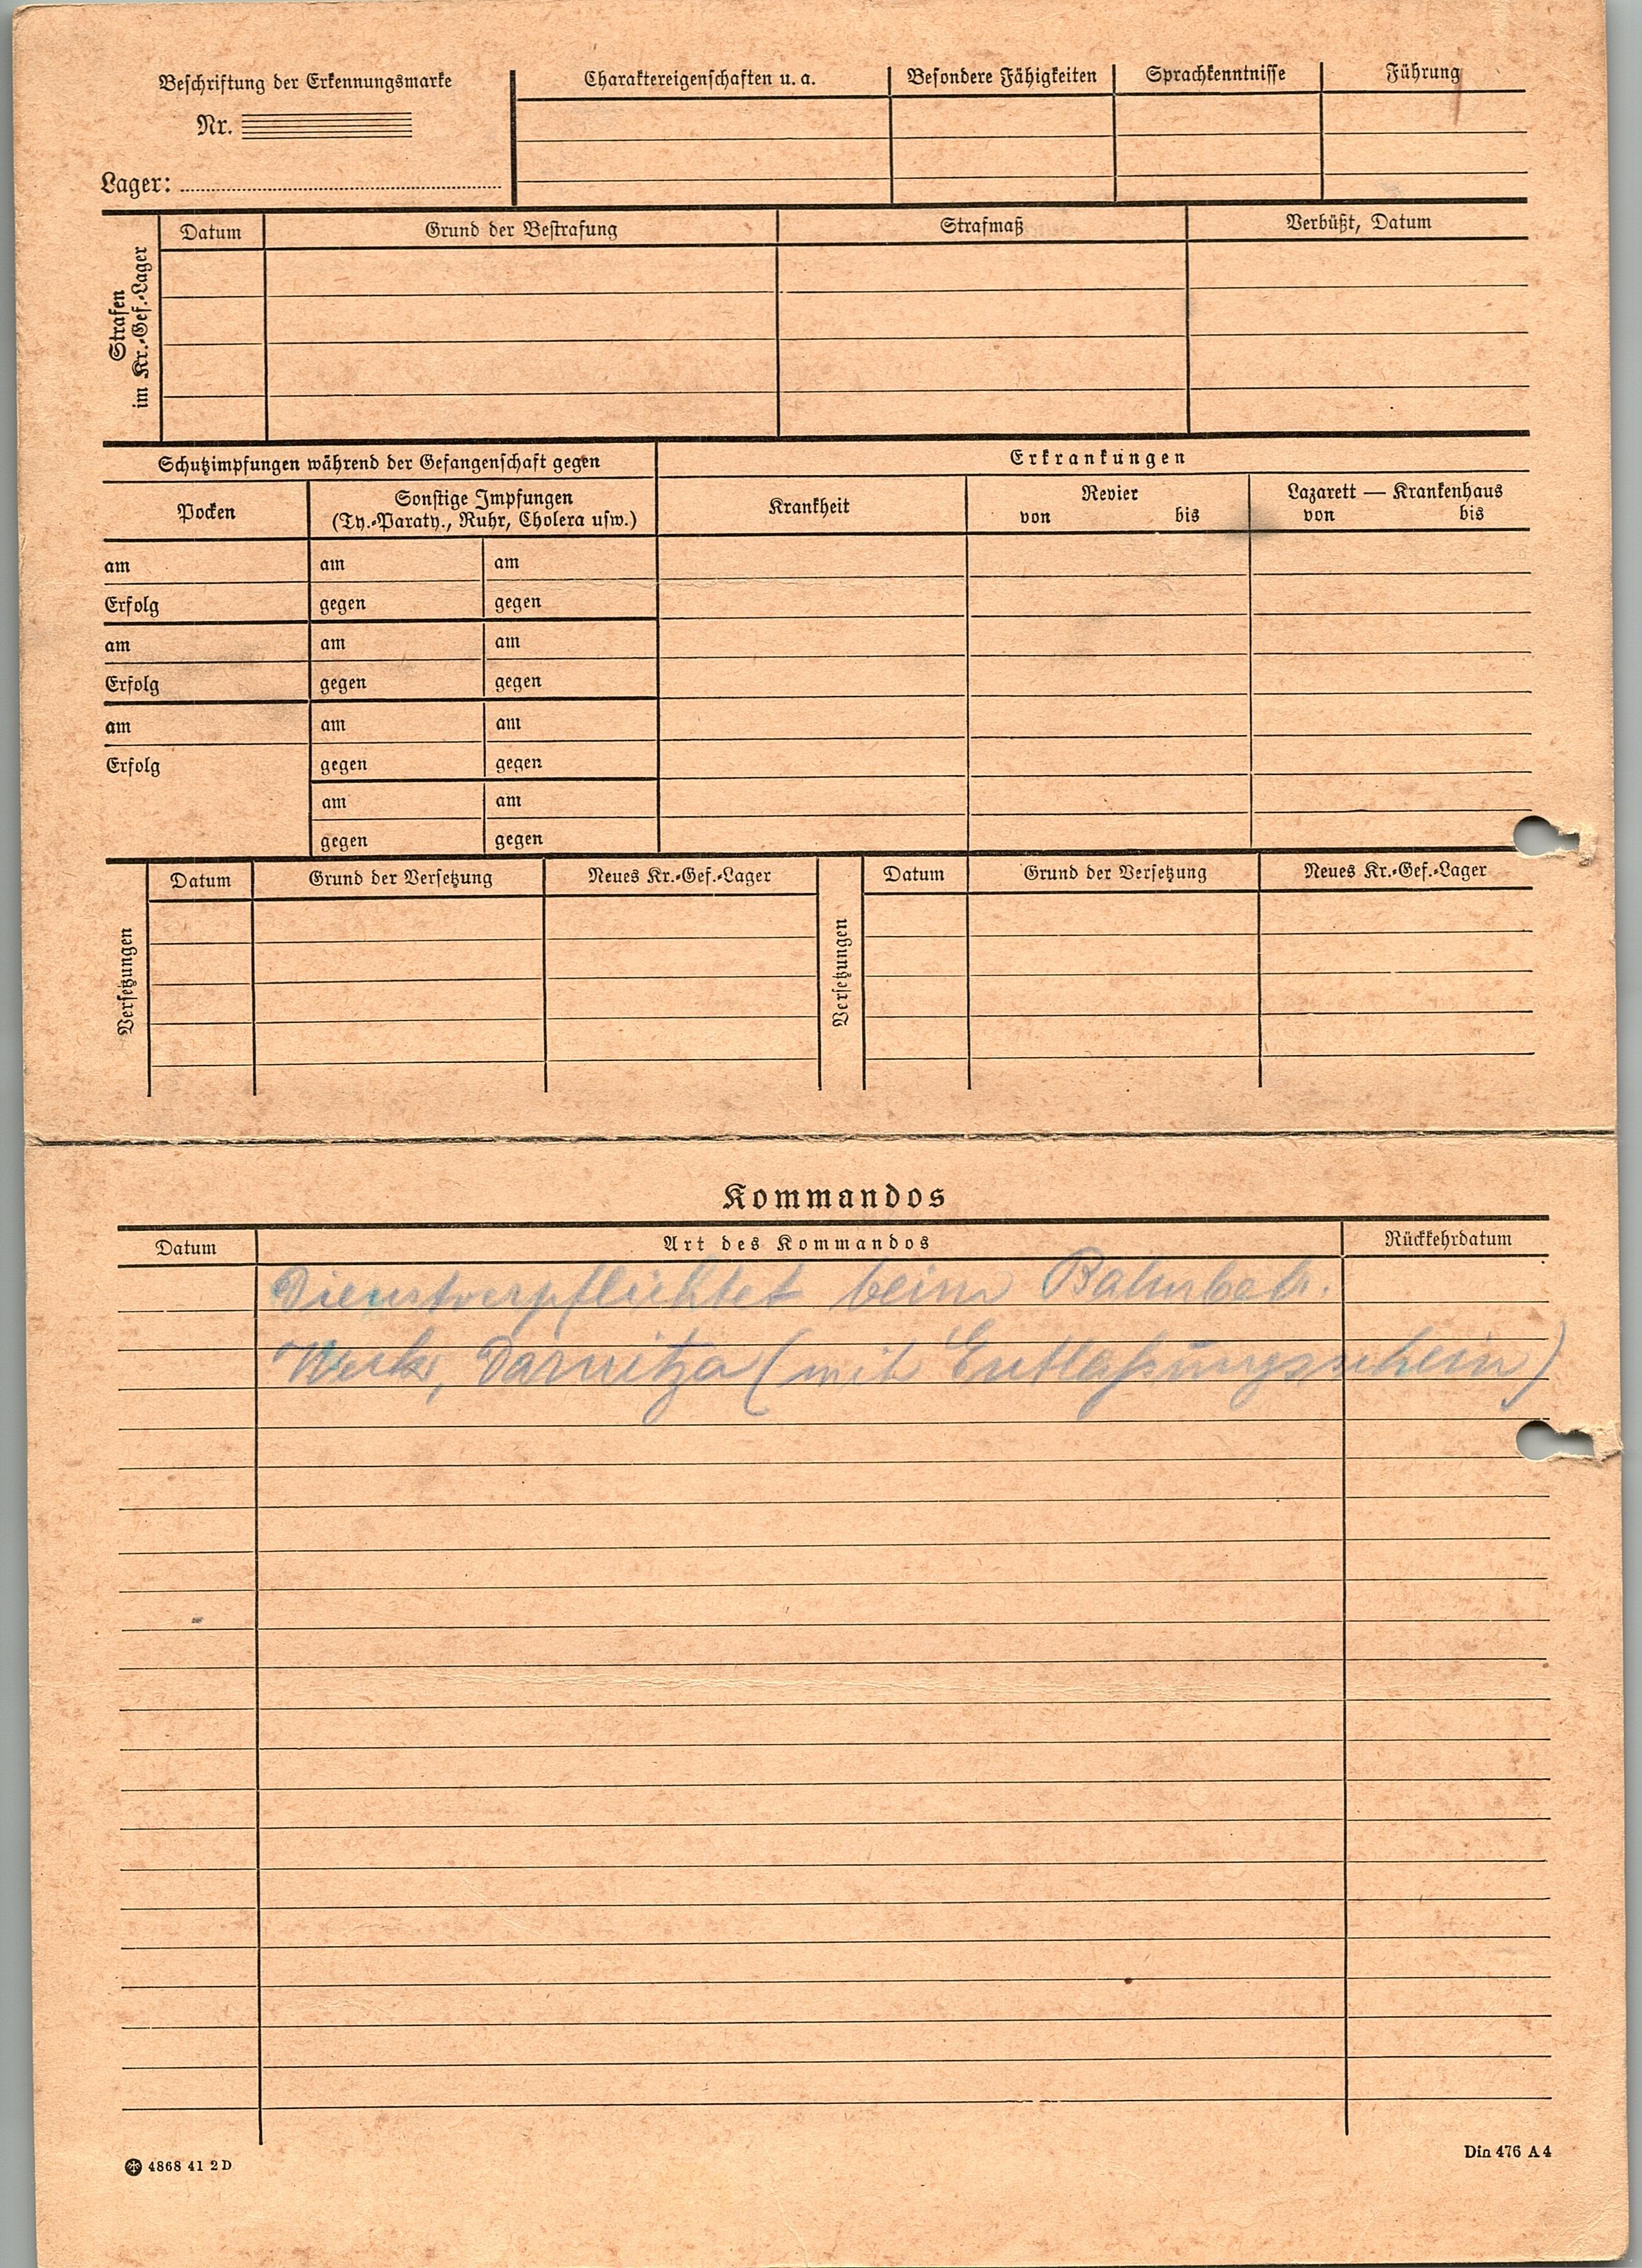 Beschriftung der Erkennungsmarke
Nr.
Lager:
Charaktereigenschaften u. a.
Besondere Fähigkeiten
Sprachkenntnisse
Führung
Strafen
im Kr.-Gef.-Lager
Datum
Grund der Bestrafung
Strafmaß
Verbüßt, Datum
Schutzimpfungen während der Gefangenschaft gegen
Erkrankungen
Pocken
Sonstige Impfungen
(Ty.-Paraty., Ruhr, Cholera usw.)
Krankheit
Revier
von bis
Lazarett — Krankenhaus
von bis
am am am
Erfolg gegen gegen
am am am
Erfolg gegen gegen
am am am
Erfolg gegen gegen
am am
gegen gegen
Versetzungen
Datum
Grund der Versetzung
Neues Kr.-Gef.-Lager
Versetzungen
Datum
Grund der Versetzung
Neues Kr.-Gef.-Lager
Kommandos
Datum
Art des Kommandos
Rückkehrdatum
Dienstverpflichtet beim Bahnbetr.
Werk, Darnitza (mit Entlaßungsschein)
4868 41 2 D
Din 476 A 4